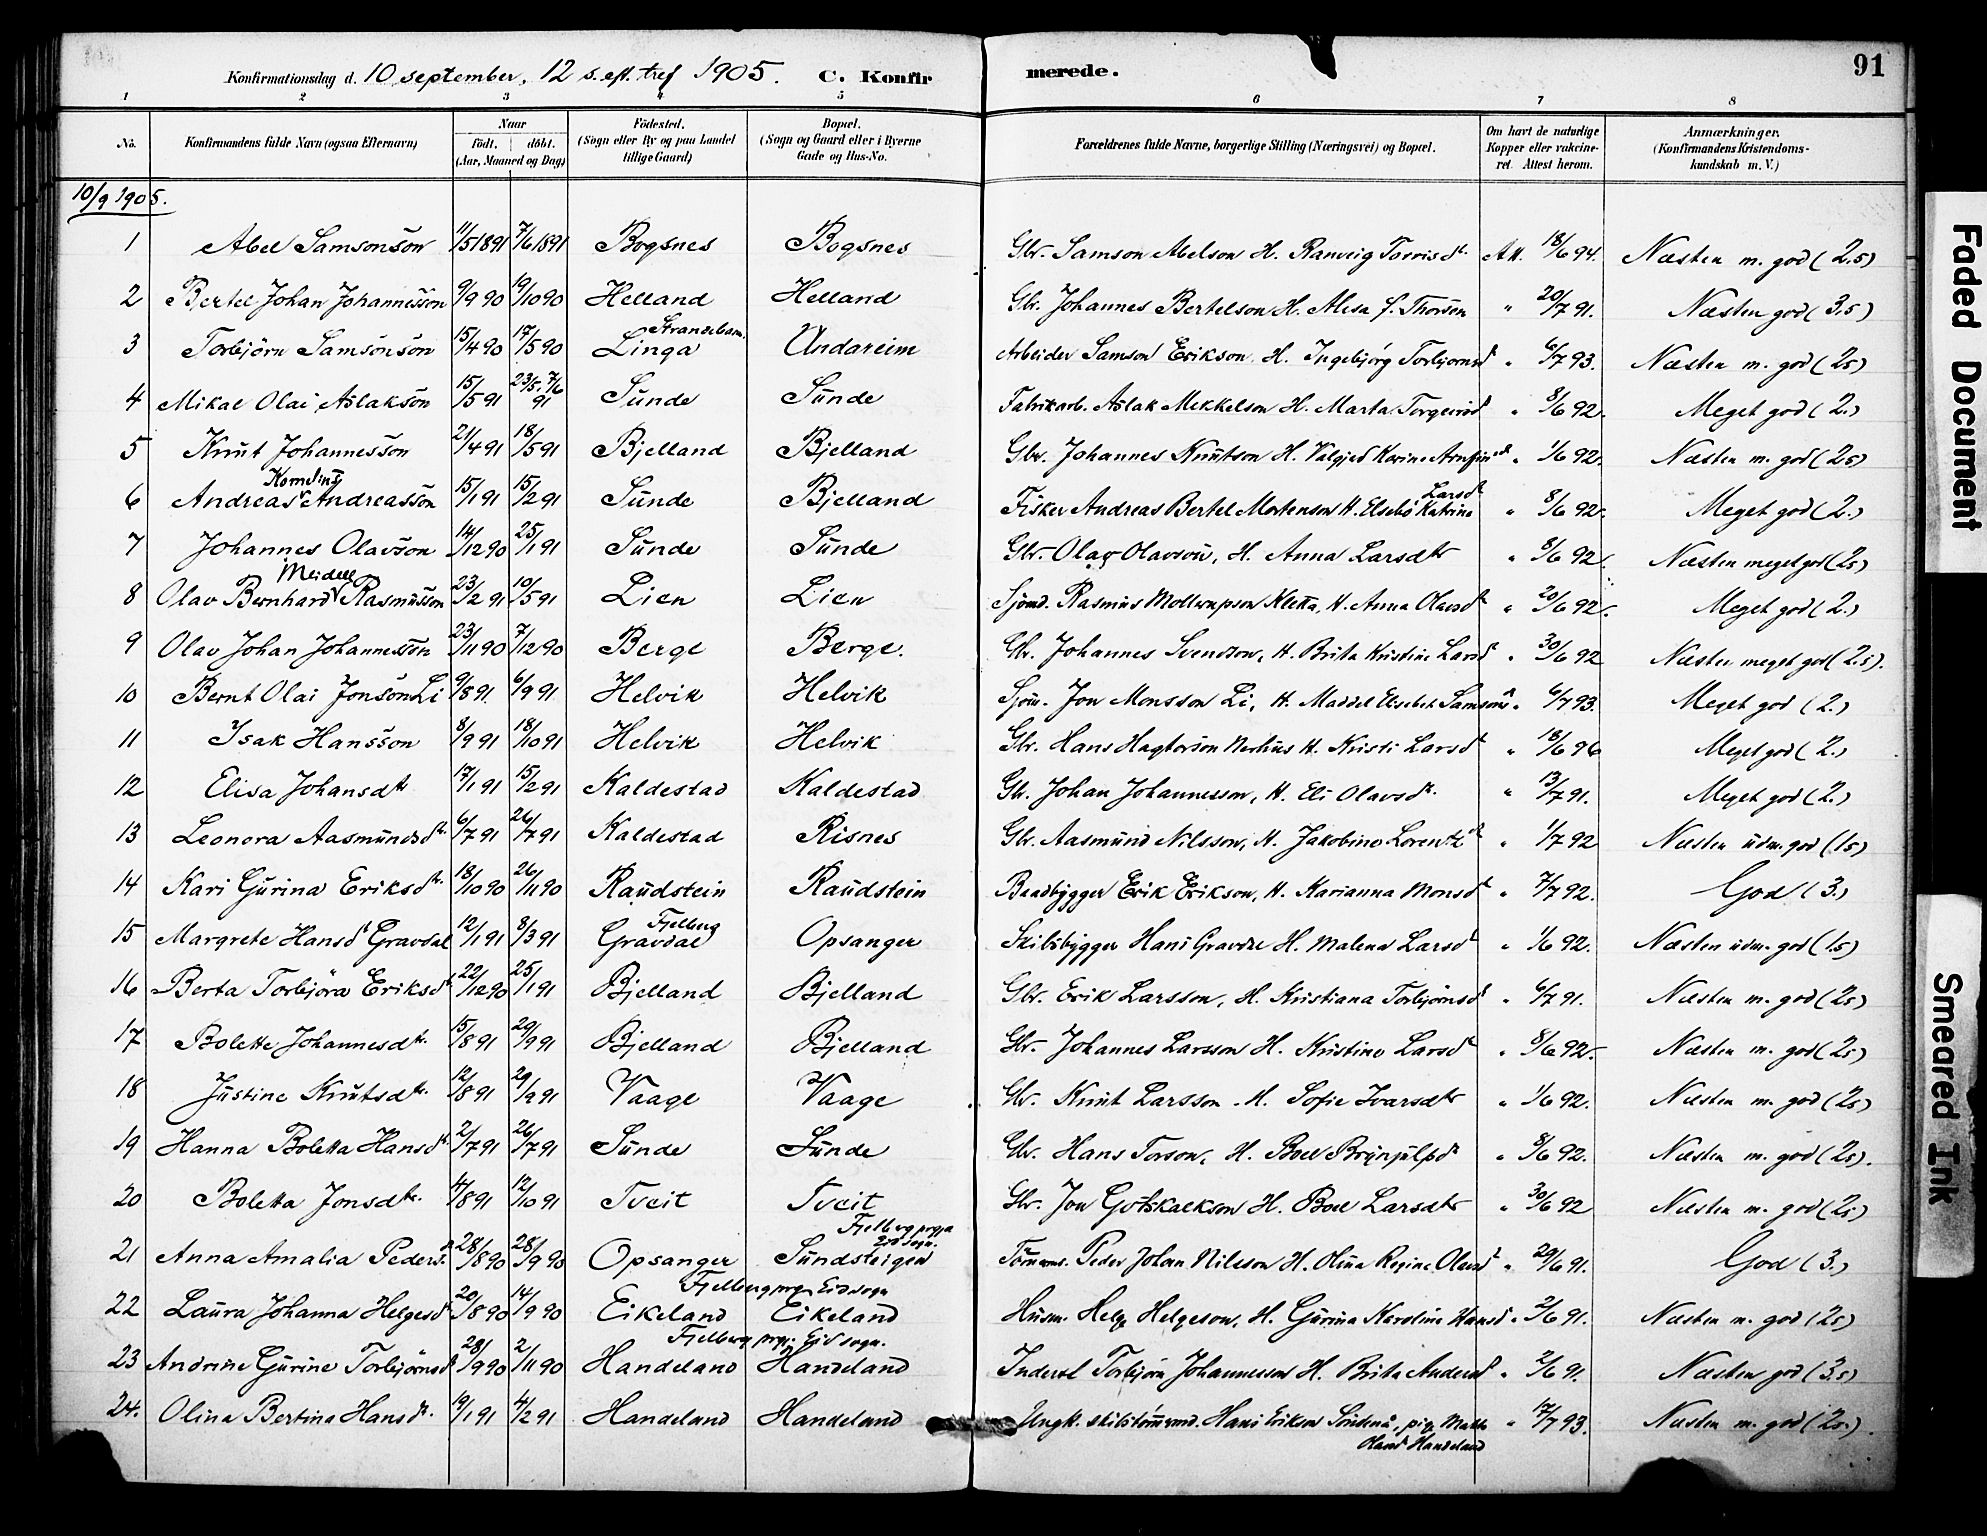 Konfirmationsdag d. 10 september, 12 s. eft. tref 1905. C. Konfirmerede. 91
1 2 3 4 5 6 7 8
No. Konfirmandens fulde Navn (ogsaa Efternavn) Naar födt. döbt. (Aar, Maaned og Dag) Födested. (Sogn eller By og paa Landet tillige Gaard) Bopæl. (Sogn og Gaard eller i Byerne Gade og Hus-No. Forældrenes fulde Navne, borgerlige Stilling (Næringsvei) og Bopæl. Om havt de naturlige Kopper eller vakcineret. Attest herom. Anmærkninger. (Konfirmandens Kristendomskundskab m. V.)
10/9 1905.
1 Abel Samsonson 11/5 1891 7/6 1891 Bogsnes Bogsnes Gbr. Samson Abelson H. Ranveig Torrisdt. Att. 18/6 94. Næsten m. god (2.5)
2 Bertel Johan Johannesson 9/9 90 19/10 90 Helland Helland Gbr. Johannes Bertelson H. Alisa f. Thorsen " 20/7 91. Næsten god (3.5)
3 Torbjörn Samsonson 15/4 90 17/5 90 Strandebarm. Linga Undareim Arbeider Samson Erikson H. Ingebjörg Torbjornsdt " 6/7 93. Næsten m. god (25)
4 Mikal Olai Aslakson 15/5 91 23/5. 7/6 91 Sunde Sunde Fabrikarb. Aslak Mikkelson H. Marta Torgeirsdt " 8/6 92. Meget god (2.)
5 Knut Johannesson 21/4 91 18/5 91 Bjelland Bjelland Gbr. Johannes Knutson H. Valgjed Karine " 1/6 92. Næsten m. god (25)
6 Andreas Kornelius Andreasson 15/1 91 15/2 91 Sunde Bjelland Fisker Andreas Bertel Mortenson H. Elsebö Katrine Larsdt " 8/6 92. Meget god (2.)
7 Johannes Olavson 14/12 90 25/1 91 Sunde Sunde Gbr. Olav Olavson, H. Anna Larsdtr " 8/6 92. Næsten meget god (25)
8 Olav Bernhard Meidell Rasmusson 23/2 91 10/5 91 Lien Lien Sjömd. Rasmus Kletta, H. Anna Olavsdt " 20/6 92. Meget god (2.)
9 Olav Johan Johannesson 23/11 90 7/12 90 Berge Berge. Gbr. Johannes Svendson, H. Brita Kristine Larsdt " 30/6 92 Næsten meget god (2.5).
10 Bernt Olai Jonson Li 9/8 91. 6/9 91 Helvik Helvik Sjöm. Jon Monsson Li, H. Maddel Elisebet " 6/7 93. Meget god (2.)
11 Isak Hansson 8/9 91 18/10 91 Helvik Helvik Gbr. Hans Hagtorson H. Kristi Larsdt " 18/6 96 Meget god (2.)
12 Elisa Johansdtr 17/1 91 15/2 91 Kaldestad Kaldestad Gbr. Johan Johannesson, H. Eli Olavsdt. " 13/7 91. Meget god (2.)
13 Leonora Aasmundsdtr. 6/7 91 26/7 91 Kaldestad Risnes Gbr. Aasmund Nilsson, H. Jakobine Lorentzdt " 1/7 92 Næsten udm. god (15)
14 Kari Gurina Eriksdtr. 18/10 90 26/11 90 Raudstein Raudstein Baadbygger Erik Erikson, H. Karianna Monsdt " 7/7 92. God (3.)
15 Margrete Hansdt Gravdal 12/1 91 8/3 91 Fjelberg Gravdal Opsanger Skibsbygger Hans Gravdal H. Malena Larsdt " 1/6 92. Næsten udm. god (15)
16 Berta Torbjöra Eriksdt. 22/12 90 25/1 91 Bjelland Bjelland Gbr. Erik Larsson, H. Kristiana Torbjörnsdt " 6/7 91. Næsten m. god (25)
17 Bolette Johannesdtr. 15/8 91 29/9 91 Bjelland Bjelland Gbr. Johannes Larsson H. Kristine Larsdt " 8/6 92. Næsten m. god (25)
18 Justine Knutsdtr. 12/8 91 29/9 91 Vaage Vaage Gbr. Knut Larsson H. Sofie Ivarsdtr " 1/6 92. Næsten m. god (25)
19 Hanna Boletta Hansdt. 2/7 91 26/7 91 Sunde Sunde Gbr. Hans Torson, H. Boel Brynjulfsdt " 8/6 92. Næsten m. god (25).
20 Boletta Jonsdtr. 4/8 91 12/10 91 Tveit Tveit Gbr. Jon Gotskalkson H. Boel Larsdtr " 30/6 92 Næsten m. god (25)
21 Anna Amalia Pedersdt. 28/8 90 28/9 90 Opsanger Fjelberg prgj. Eid sogn. Sundsteigen Tömrm. Peder Johan Nilsson H. Olina Regine Olavsdt " 29/6 91. God (3.)
22 Laura Johanna Helgesdt 20/8 90 14/9 90 Fjelberg prgj. Eid sogn Eikeland Eikeland Husm. Helge Helgeson, H. Gurina Karoline Hansdt " 2/6 91. Næsten m. god (25)
23 Andrine Gurine Torbjörnsdt 29/9 90 2/11 90 Fjelberg prgj. Eid sogn. Handeland Handeland Inderst Torbjörn Johannesson H. Brita Andersdt " 2/6 91. Næsten god (3.5)
24. Olina Bertina Hansdt. 19/1 91 4/2 91 Handeland Handeland Ungk. skibstömmmd. Hans Erikson pige Handeland " 17/7 93. Næsten m. god (25.)
Faded Document
Smeared Ink